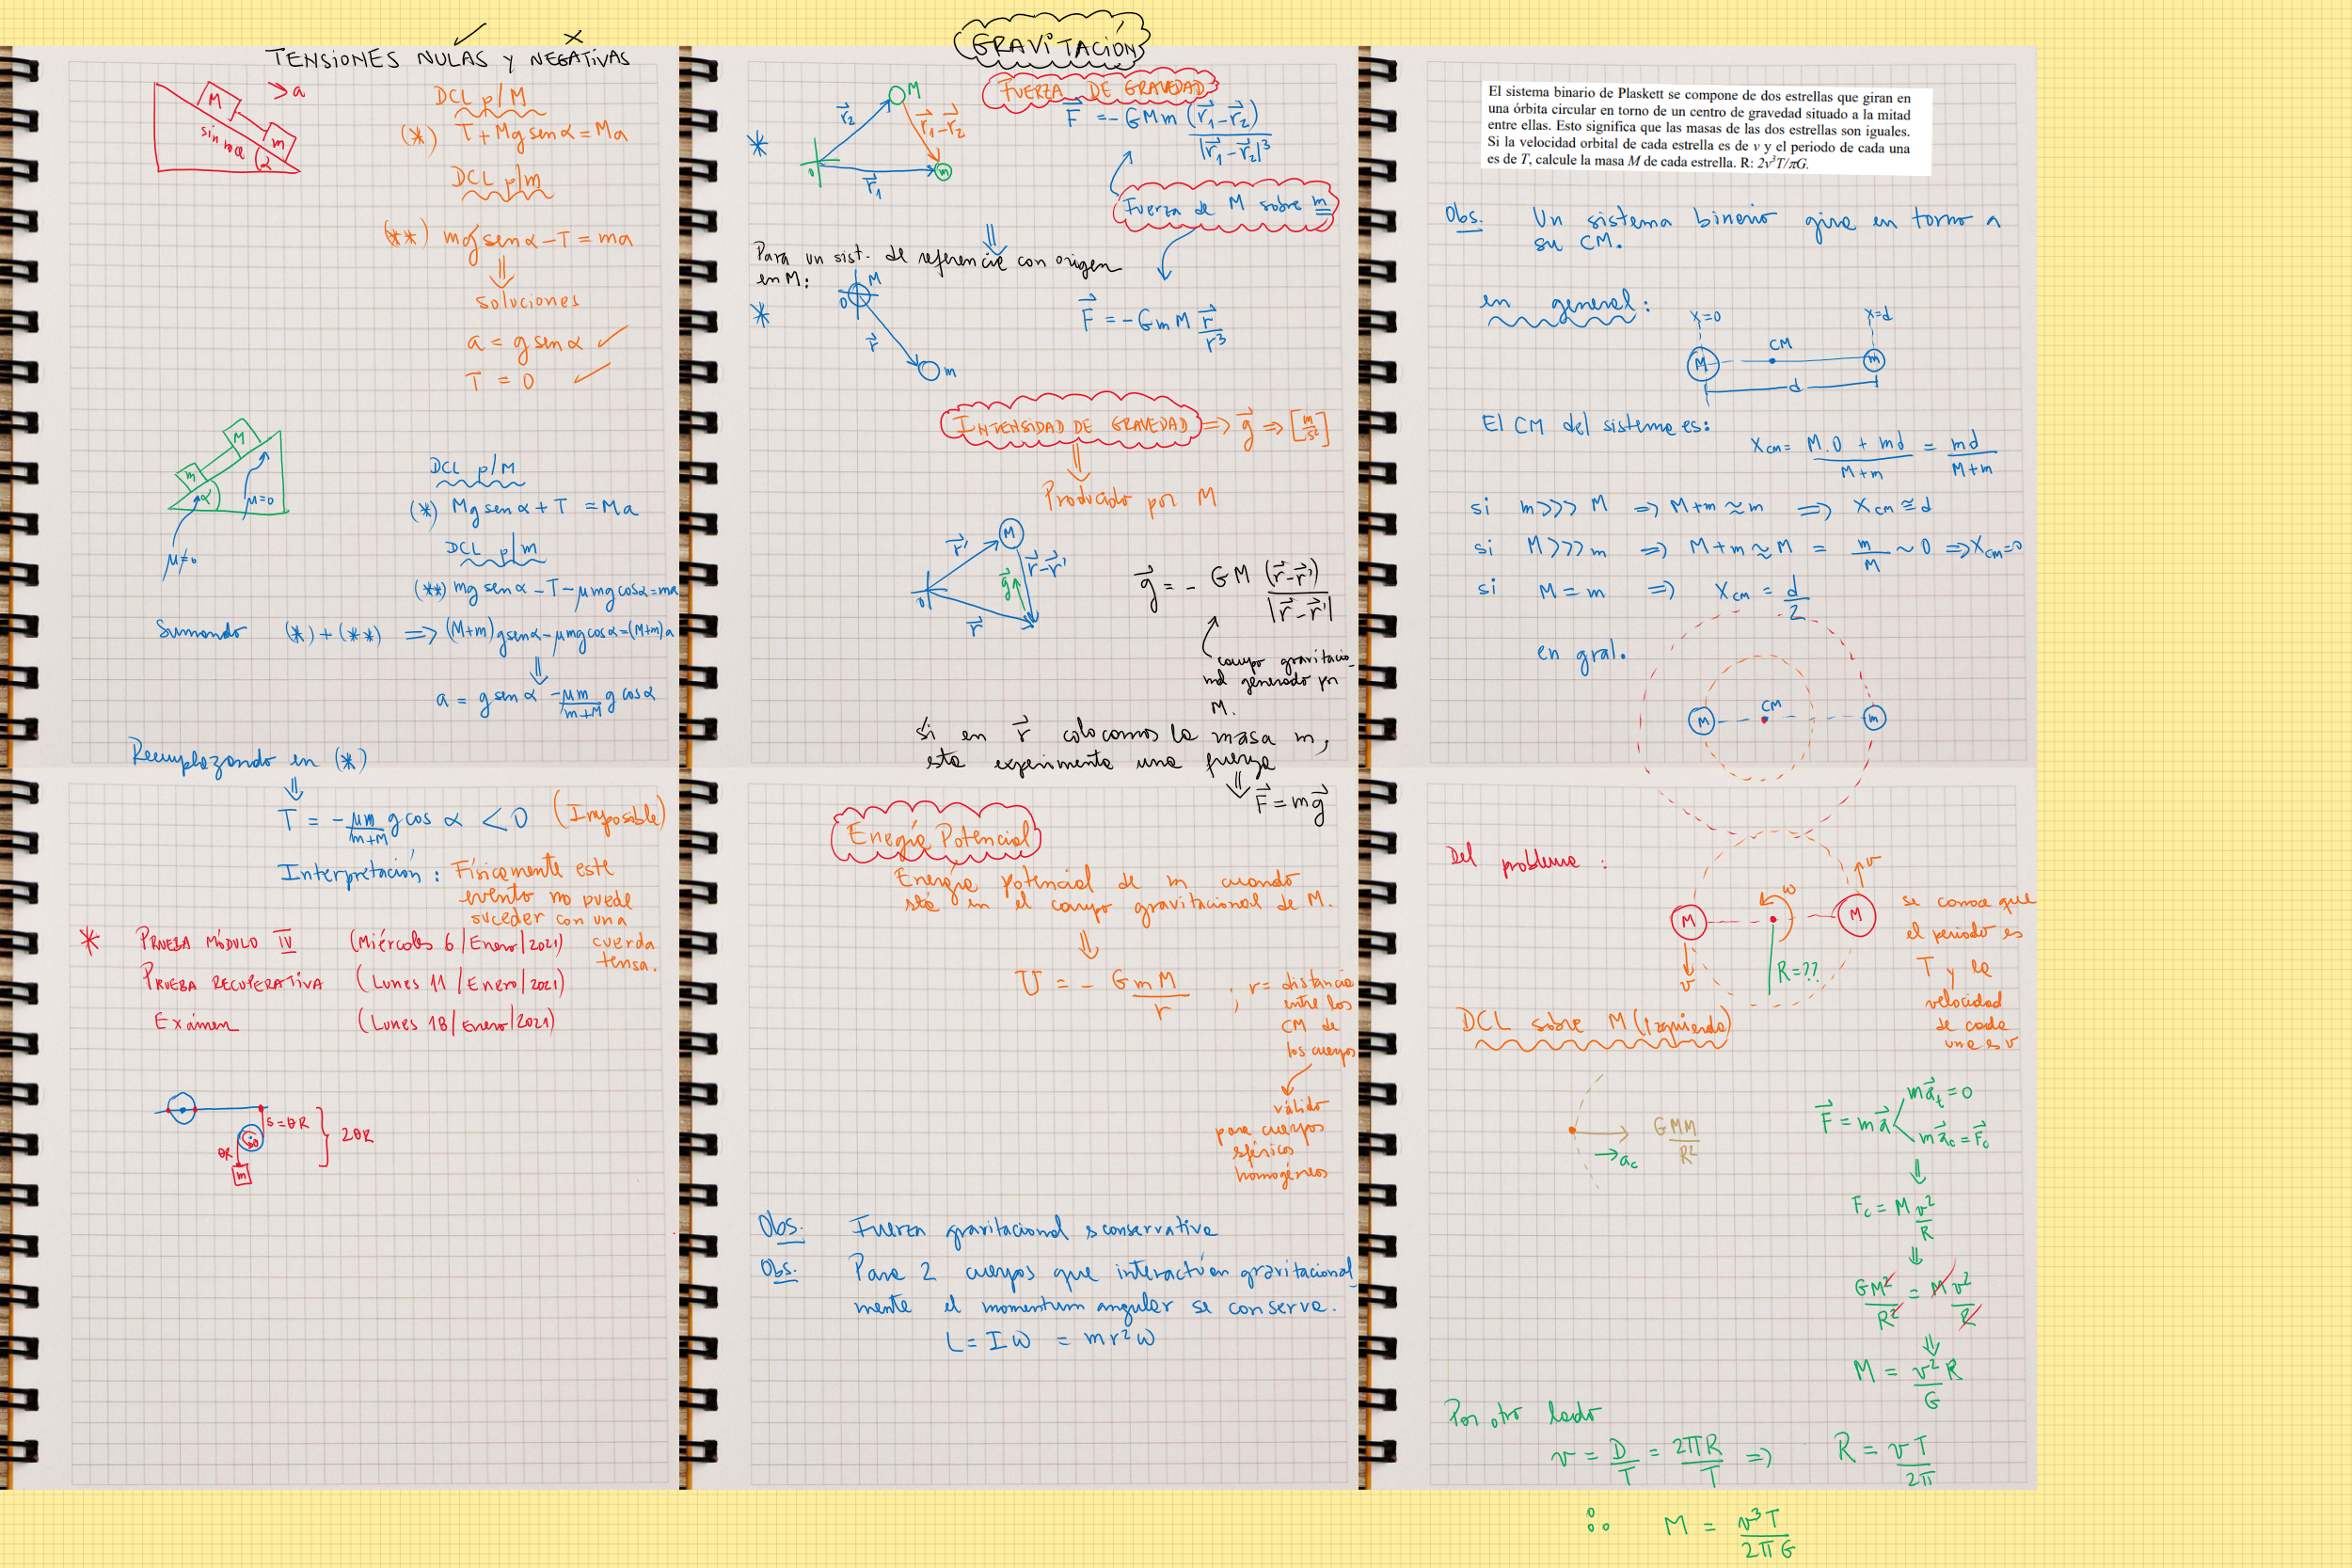 TENSIONES NULAS y NEGATIVAS
M
m
a
sin roce
α
DCL p/M
(*) T + Mg sen α = Ma
DCL p/m
(**) mg sen α - T = ma
⇓
soluciones
a = g sen α ✓
T = 0 ✓
M
m
α
μ=0
μ≠0
DCL p/M
(*) Mg sen α + T = Ma
DCL p/m
(**) mg sen α - T - μmg cosα = ma
Sumando (*) + (**) ⇒ (M+m)g senα - μmg cosα = (M+m)a
⇓
a = g sen α - μm/(m+M) g cos α
Reemplazando en (*)
⇓
T = - μm/(m+M) g cos α < 0 (Imposible)
Interpretación : Físicamente este
evento no puede
suceder con una
cuerda
tensa.
* PRUEBA MÓDULO IV (Miércoles 6/Enero/2021)
PRUEBA RECUPERATIVA (Lunes 11/Enero/2021)
Exámen (Lunes 18/Enero/2021)
s = θR
θR
2θR
m
GRAVITACIÓN
FUERZA DE GRAVEDAD
M
r₂
r₁-r₂
r₁
0
m
*
F = - GMm (r₁-r₂)/|r₁-r₂|³
Fuerza de M sobre m
⇓
Para un sist. de referencia con origen
en M:
M
0
r
m
*
F = - GmM r/r³
INTENSIDAD DE GRAVEDAD ⇒ g ⇒ [m/s²]
⇓
Producido por M
M
r'
r-r'
g
0
r
g = - GM (r-r')/|r-r'|
campo gravitacio_
nal generado por
M.
Si en r colocamos la masa m,
esta experimenta una fuerza
⇓
F = mg
Energía Potencial
Energía potencial de m cuando
stá en el campo gravitacional de M.
⇓
U = - GmM/r ; r = distancia
entre los
CM de
los cuerpos
válido
para cuerpos
sféricos
homogéneos
Obs. Fuerza gravitacional s conservativa
Obs. Para 2 cuerpos que interactúan gravitacional_
mente el momentum angular se conserva.
L = I ω = mr²ω
El sistema binario de Plaskett se compone de dos estrellas que giran en
una órbita circular en torno de un centro de gravedad situado a la mitad
entre ellas. Esto significa que las masas de las dos estrellas son iguales.
Si la velocidad orbital de cada estrella es de v y el periodo de cada una
es de T, calcule la masa M de cada estrella. R: 2v³T/πG.
Obs. Un sistema binario gira en torno a
su CM.
en general:
x=0
x=d
CM
M
m
d
El CM del sistema es:
Xcm = (M.0 + md)/(M+m) = md/(M+m)
si m>>> M ⇒ M+m ≈ m ⇒ Xcm ≅ d
si M>>>m ⇒ M+m ≈ M = m/M ~ 0 ⇒ Xcm=0
si M = m ⇒ Xcm = d/2
en gral.
M
CM
m
Del problema :
v
ω
M
M
R=??
v
se conoce que
el periodo es
T y la
velocidad
de cada
una es v
DCL sobre M (izquierda)
GMM/R²
→ ac
F = ma
mat = 0
mac = Fc
⇓
Fc = M v²/R
⇓
GM²/R² = M v²/R
⇓
M = v²/G R
Por otro lado
v = D/T = 2πR/T ⇒ R = vT/2π
∴ M = v³T/2πG